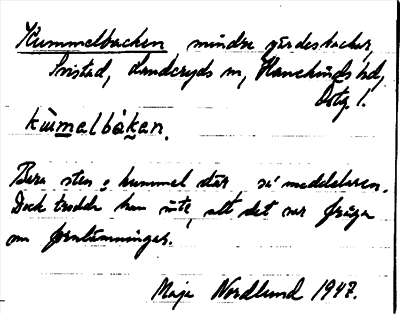 Kummelbacken, mindre gärdesbackar,
Svistad, Landeryds sn, Hanekinds hd,
Östg. l.
kùmalbákan.
Bara sten o. kummel där, sa' meddelaren.
Dock trodde han inte, att det var fråga
om fornlämningar.
Maja Nordlund 1947.